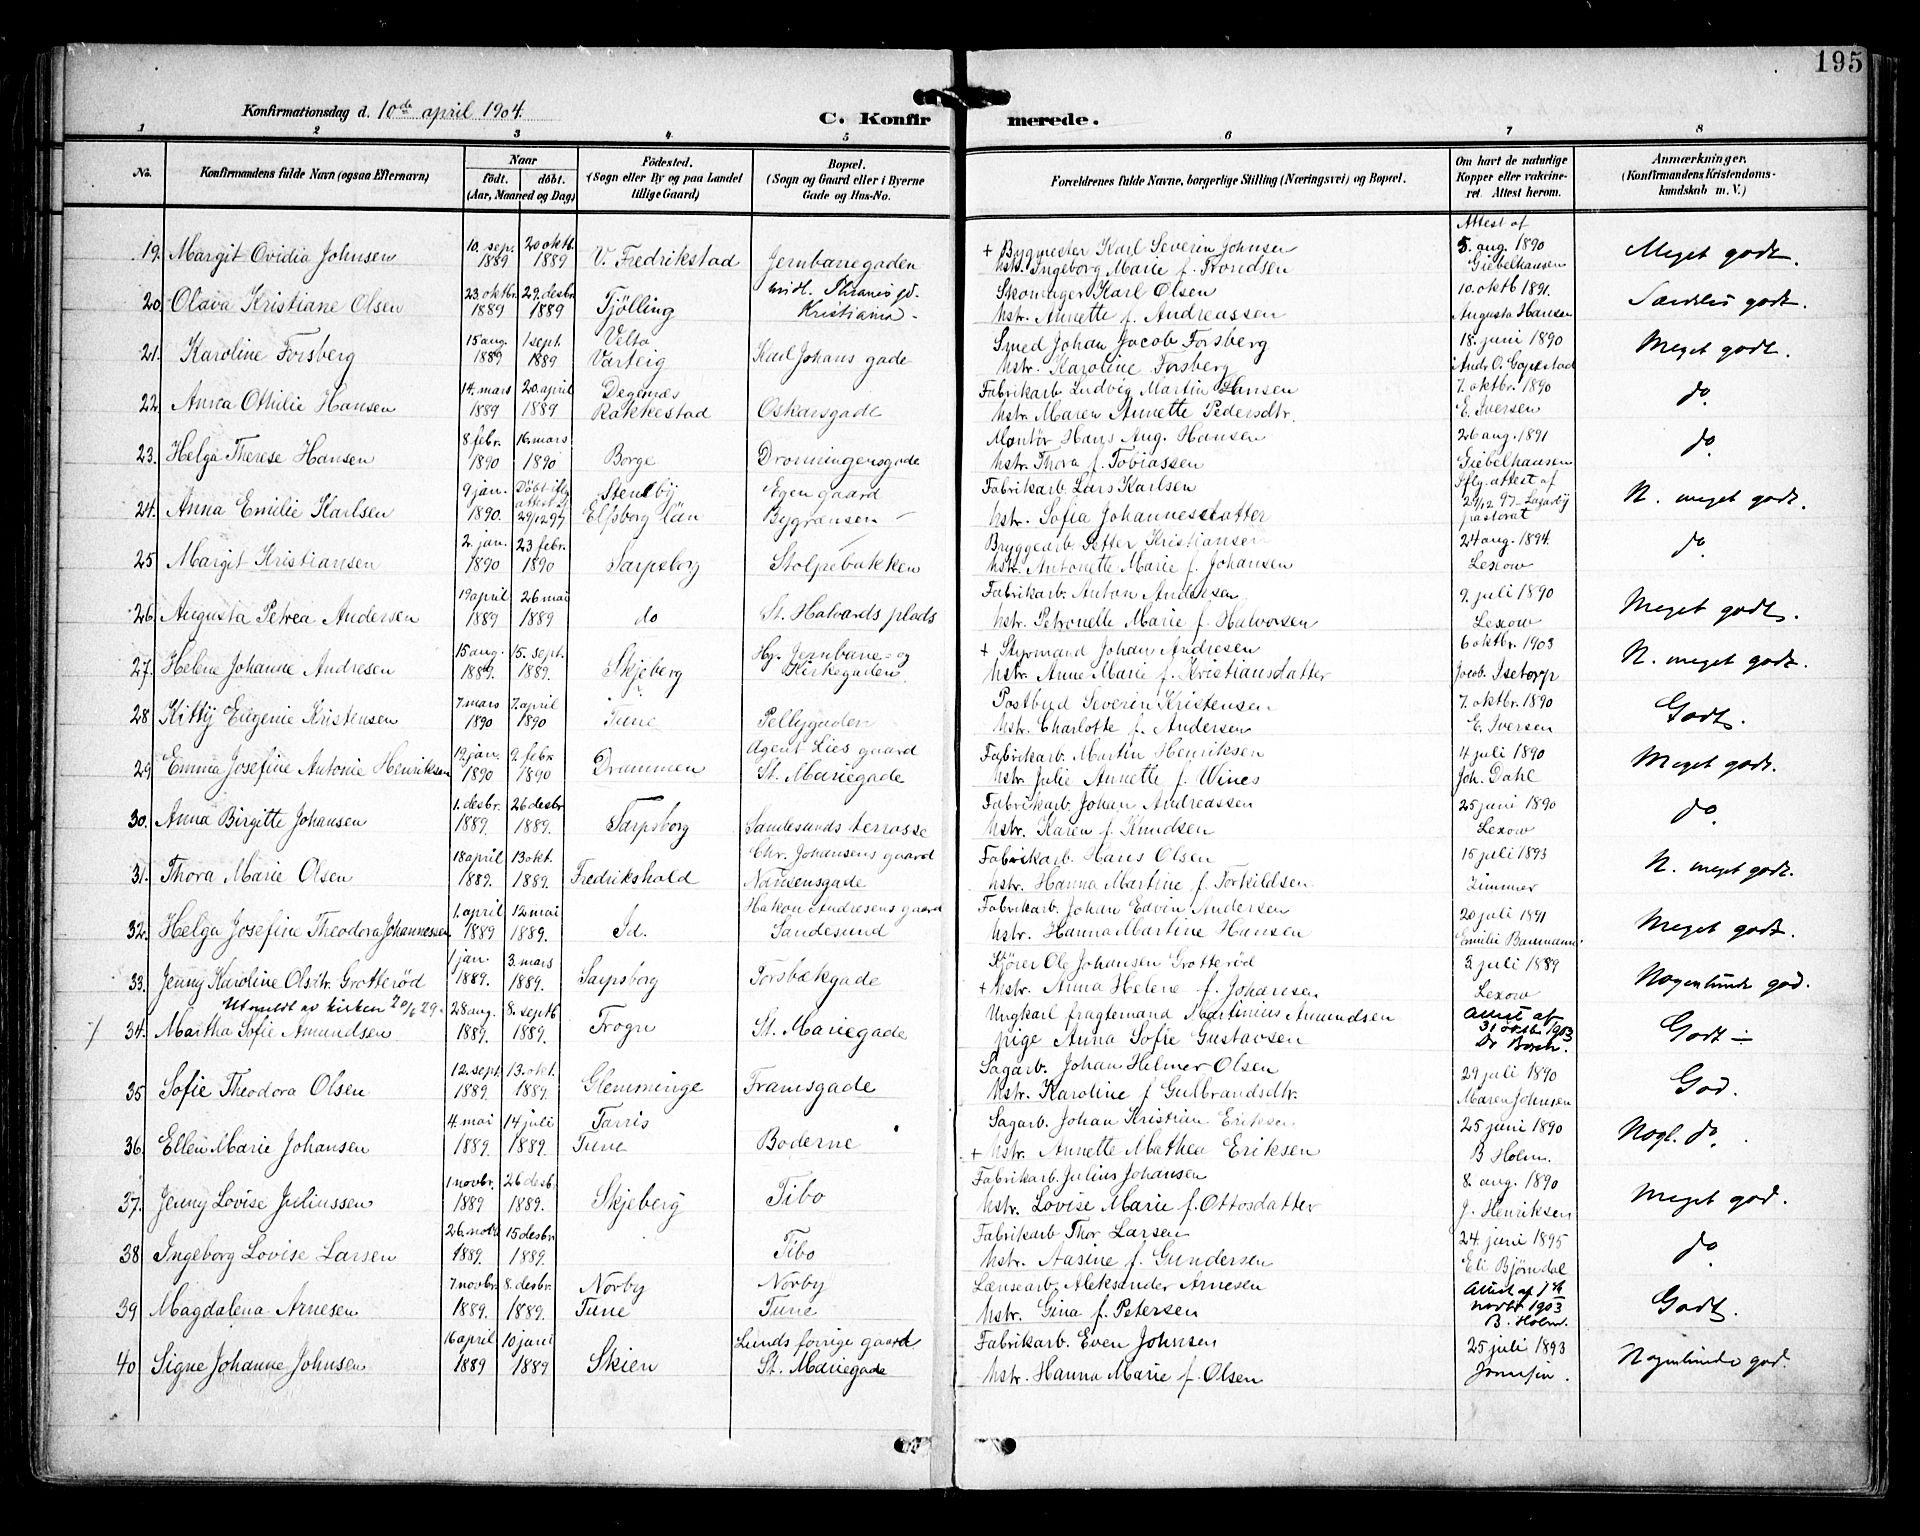 195
Konfirmationsdag d. 10de april 1904.
C. Konfirmerede.
1 2 3 4 5 6 7 8
No. Konfirmandens fulde Navn (ogsaa Efternavn) Naar födt. döbt. (Aar, Maaned og Dag) Födested. (Sogn eller By og paa Landet tillige Gaard) Bopæl. (Sogn og Gaard eller i Byerne Gade og Hus-No. Forældrenes fulde Navne, borgerlige Stilling (Næringsvei) og Bopæl. Om havt de naturlige Kopper eller vakcineret. Attest herom. Anmærkninger. (Konfirmandens Kristendomskundskab m. V.)
19. Margit Ovidia Johnsen 10. sep. 1889 20 oktb. 1889 V. Fredrikstad Jernbanegaden + Bygmester Karl Severin Johnsen Hstr. Ingeborg Marie f. Trondsen Attest af 5. aug. 1890 Giebelhausen Meget godt.
20. Olava Kristiane Olsen 23. oktbr. 1889 29. desbr. 1889 Tjölling Kristiania Skomager Karl Olsen Hstr. Annette f. Andreassen 10. oktb 1891. Augusta Hansen Særdeles godt.
21. Karoline Forsberg 15 aug. 1889 1 sept. 1889 Velta Varteig Karl Johans gade Smed Johan Jacob Forsberg Hstr. Karoline Forsberg 18. juni 1890 Meget godt.
22. Anna Othilie Hansen 14. mars 1889 20. april 1889 Degernes Rakkestad Oskarsgade Fabrikarb. Ludvig Martin Hansen Hstr. Maren Annette Pedersdtr. 7. oktbr. 1890 E. Iversen do.
23. Helga Therese Hansen 8 febr. 1890 16. mars 1890 Borge Dronningensgade Montör Hans Aug. Hansen Hstr. Thora f. Tobiassen 26 aug. 1891 Giebelhausen do.
24. Anna Emilie Karlsen 9 jan. 1890. Döbt iflg. attest af 29/12 97 Stenby Elfsborg län Egen gaard Bygrænsen Fabrikarb. Lars Karlsen Hstr. Sofia Johannesdatter Iflg. attest af 29/12 97. pastorat N. meget godt.
25 Margit Kristiansen 2. jan. 1890 23 febr. 1890 Sarpsborg Stolpebakken Bryggearb. Petter Kristiansen Hstr. Antonette Marie f. Johansen 24 aug. 1894. Lexow do.
26. Augusta Petrea Andersen 19 april 1889 26 mai 1889 do St. Halvards plads Fabrikarb. Anton Andersen Hstr. Petronelle Marie f. Halvorsen 9. juli 1890 Lexow Meget godt.
27. Helene Johanne Andresen 15 aug. 1889. 15. sept. 1889. Skjeberg Hj. Jernbane- og Kirkegaden + Styrmand Johan Andresen Hstr. Anne Marie f. Kristiansdatter 6 oktbr. 1903 Jacob Isetorp N. meget godt.
28 Kitty Eugenie Kristensen 7 mars 1890 7. april 1890 Tune Pellygaden Postbud Severin Kristensen Hstr. Charlotte f. Andersen 7. oktbr. 1890 E. Iversen Godt.
29 Emma Josefine Antonie Henriksen 12 jan. 1890 9. febr. 1890 Drammen Agent Lies gaard St. Mariegade Fabrikarb. Martin Henriksen Hstr. Julie Annette f. Wines 4 juli 1890 Joh. Dahl Meget godt.
30. Anna Birgitte Johansen 1. desbr. 1889. 26 desbr 1889. Sarpsborg Sandesunds terrasse Fabrikarb. Johan Andreassen Hstr. Karen f. Knudsen 25 juni 1890 Lexow do.
31. Thora Marie Olsen 18 april 1889. 13 okt. 1889. Fredrikshald Chr. Johansens gaard Nansensgade Fabrikarb. Hans Olsen Hstr. Hanna Martine f. Torkildsen 15 juli 1893 Zimmer N. meget godt.
32. Helga Josefine Theodora Johannessen 1. april 1889 12 mai 1889. Id. Hakon Andresens gaard Sandesund Fabrikarb. Johan Edvin Andersen Hstr. Hanna Martine Hansen 20 juli 1891 Emilie Meget godt.
33. Jenny Karoline Olsdtr. Grotteröd 1 jan. 1889. 3. mars 1889. Sarpsborg Torsbækgade Kjörer Ole Johansen Grotteröd + Hstr. Anna Helene f. Johansen 3. juli 1889 Lexow Nogenlunde god.
Utmeldt av kirken 20/6 29.
34. Martha Sofie Amundsen 28 aug. 1889. 8. septb 1889. Trogn St. Mariegade Ungkarl fragtemand Martinius Amundsen pige Anna Sofie Gustavsen Attest af 31 oktbr 1903 Dr Godt —
35 Sofie Theodora Olsen 12. sept. 1889 13. okt. 1889. Glemminge Framsgade Sagarb. Johan Helmer Olsen Hstr. Karoline f Gulbrandsdtr. 29 juli 1890 Maren Johnsen God.
36. Ellen Marie Johansen 4. mai 1889. 14 juli 1889. Tarris Tune Boderne Sagarb. Johan Kristian Eriksen + Hstr. Annette Mathea Eriksen 25 juni 1890 B Holm. Nogl. do.
37. Jenny Lovise Juliussen 1 novbr. 1889 26 desb. 1889. Skjeberg Tibo Fabrikarb. Julius Johansen Hstr. Lovise Marie f. Ottosdatter 8. aug. 1890 J. Henriksen Meget god.
38 Ingeborg Lovise Larsen 26. novb. 1889. 15 desbr 1889. Tibo Fabrikarb. Thor Larsen Hstr. Aasine f. Gundersen 24. juni 1895 Eli Bjørndal do.
39 Magdalena Arnesen 7 novbr. 1889. 8. desbr. 1889. Norby Tune Norby Tune Lænsearb. Aleksander Arnesen Hstr. Gina f. Petersen Attest af novbr 1903 B. Holm. Godt.
40 Signe Johanne Johnsen 16 april 1889 10 juni 1889 Skien Lunds forrige gaard St. Mariegade Fabrikarb. Even Johnsen Hstr. Hanna Marie f. Olsen 25 juli 1893 Nogenlunde god.